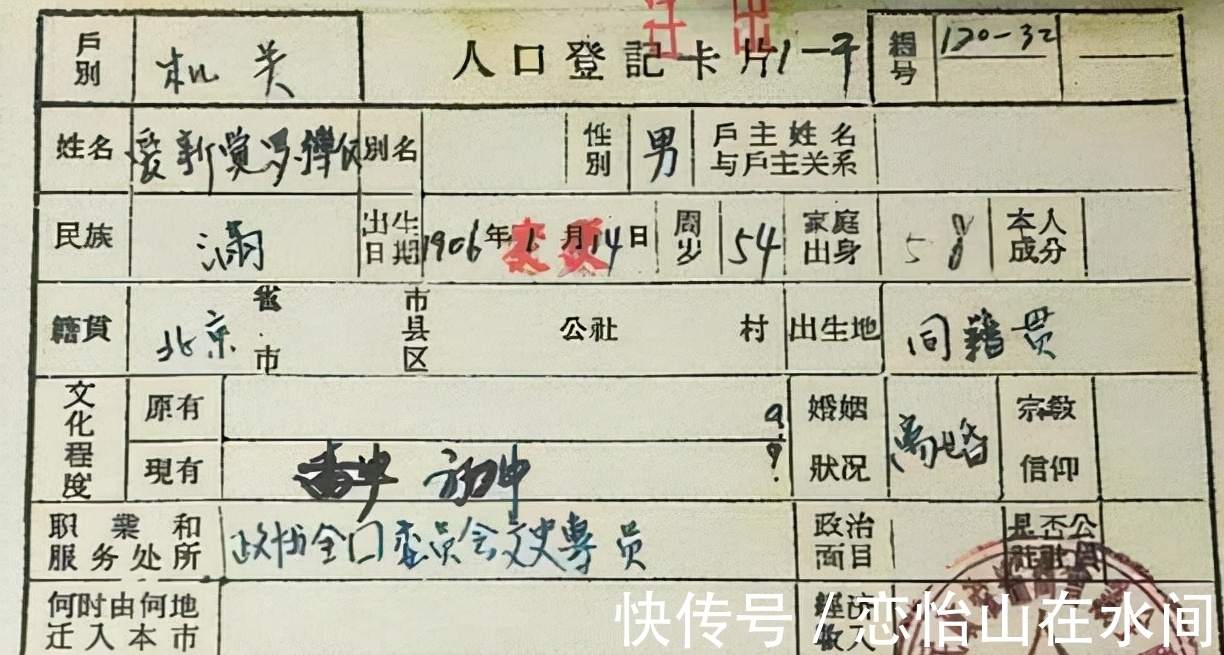 戶別 机关 人口登記卡片 1-7 編号 120-32
姓名 爱新觉罗 別名 性別 男 戶主姓名与戶主关系
民族 满 出生日期 1906年1月14日 周岁 54 家庭出身 本人成分
籍貫 北京 省市 市县区 公社 村 出生地 同籍贯
文化程度 原有
現有 初中 婚姻狀况 离婚 宗教信仰
职業和服务处所 政协全 委员会文史專员 政治面目 是否公社社員
何时由何地迁入本市
快传号 / 恋怡山在水间